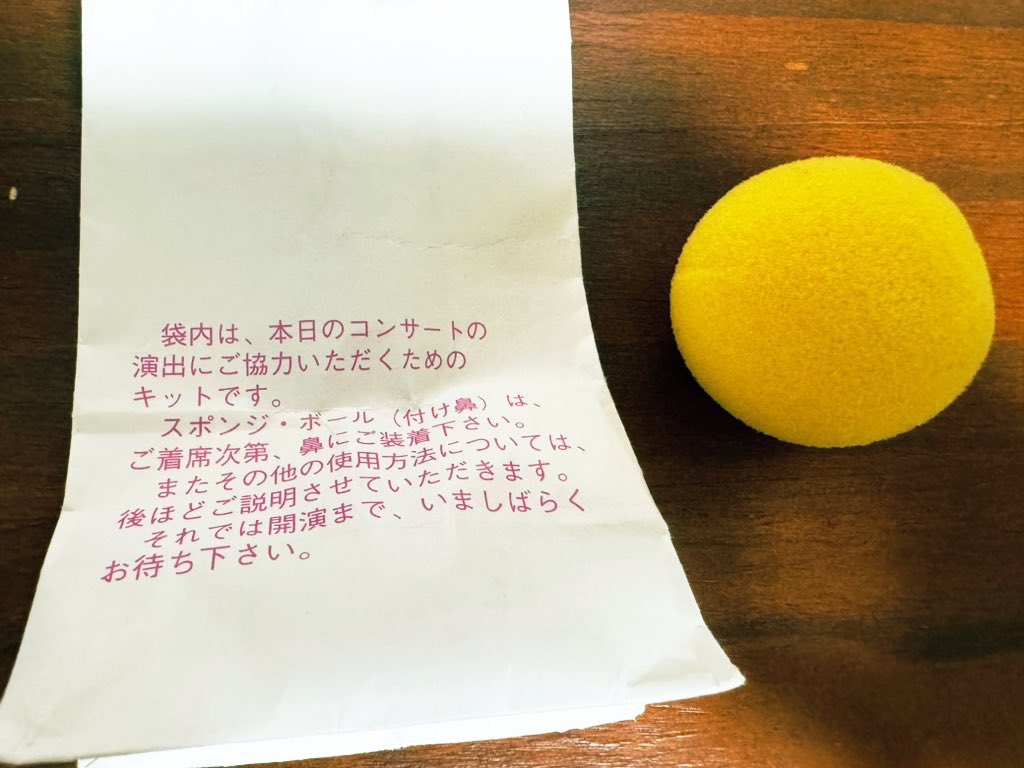 袋内は、本日のコンサートの
演出にご協力いただくための
キットです。
スポンジ・ボール（付け鼻）は、
ご着席次第、鼻にご装着下さい。
またその他の使用方法については、
後ほどご説明させていただきます。
それでは開演まで、いましばらく
お待ち下さい。